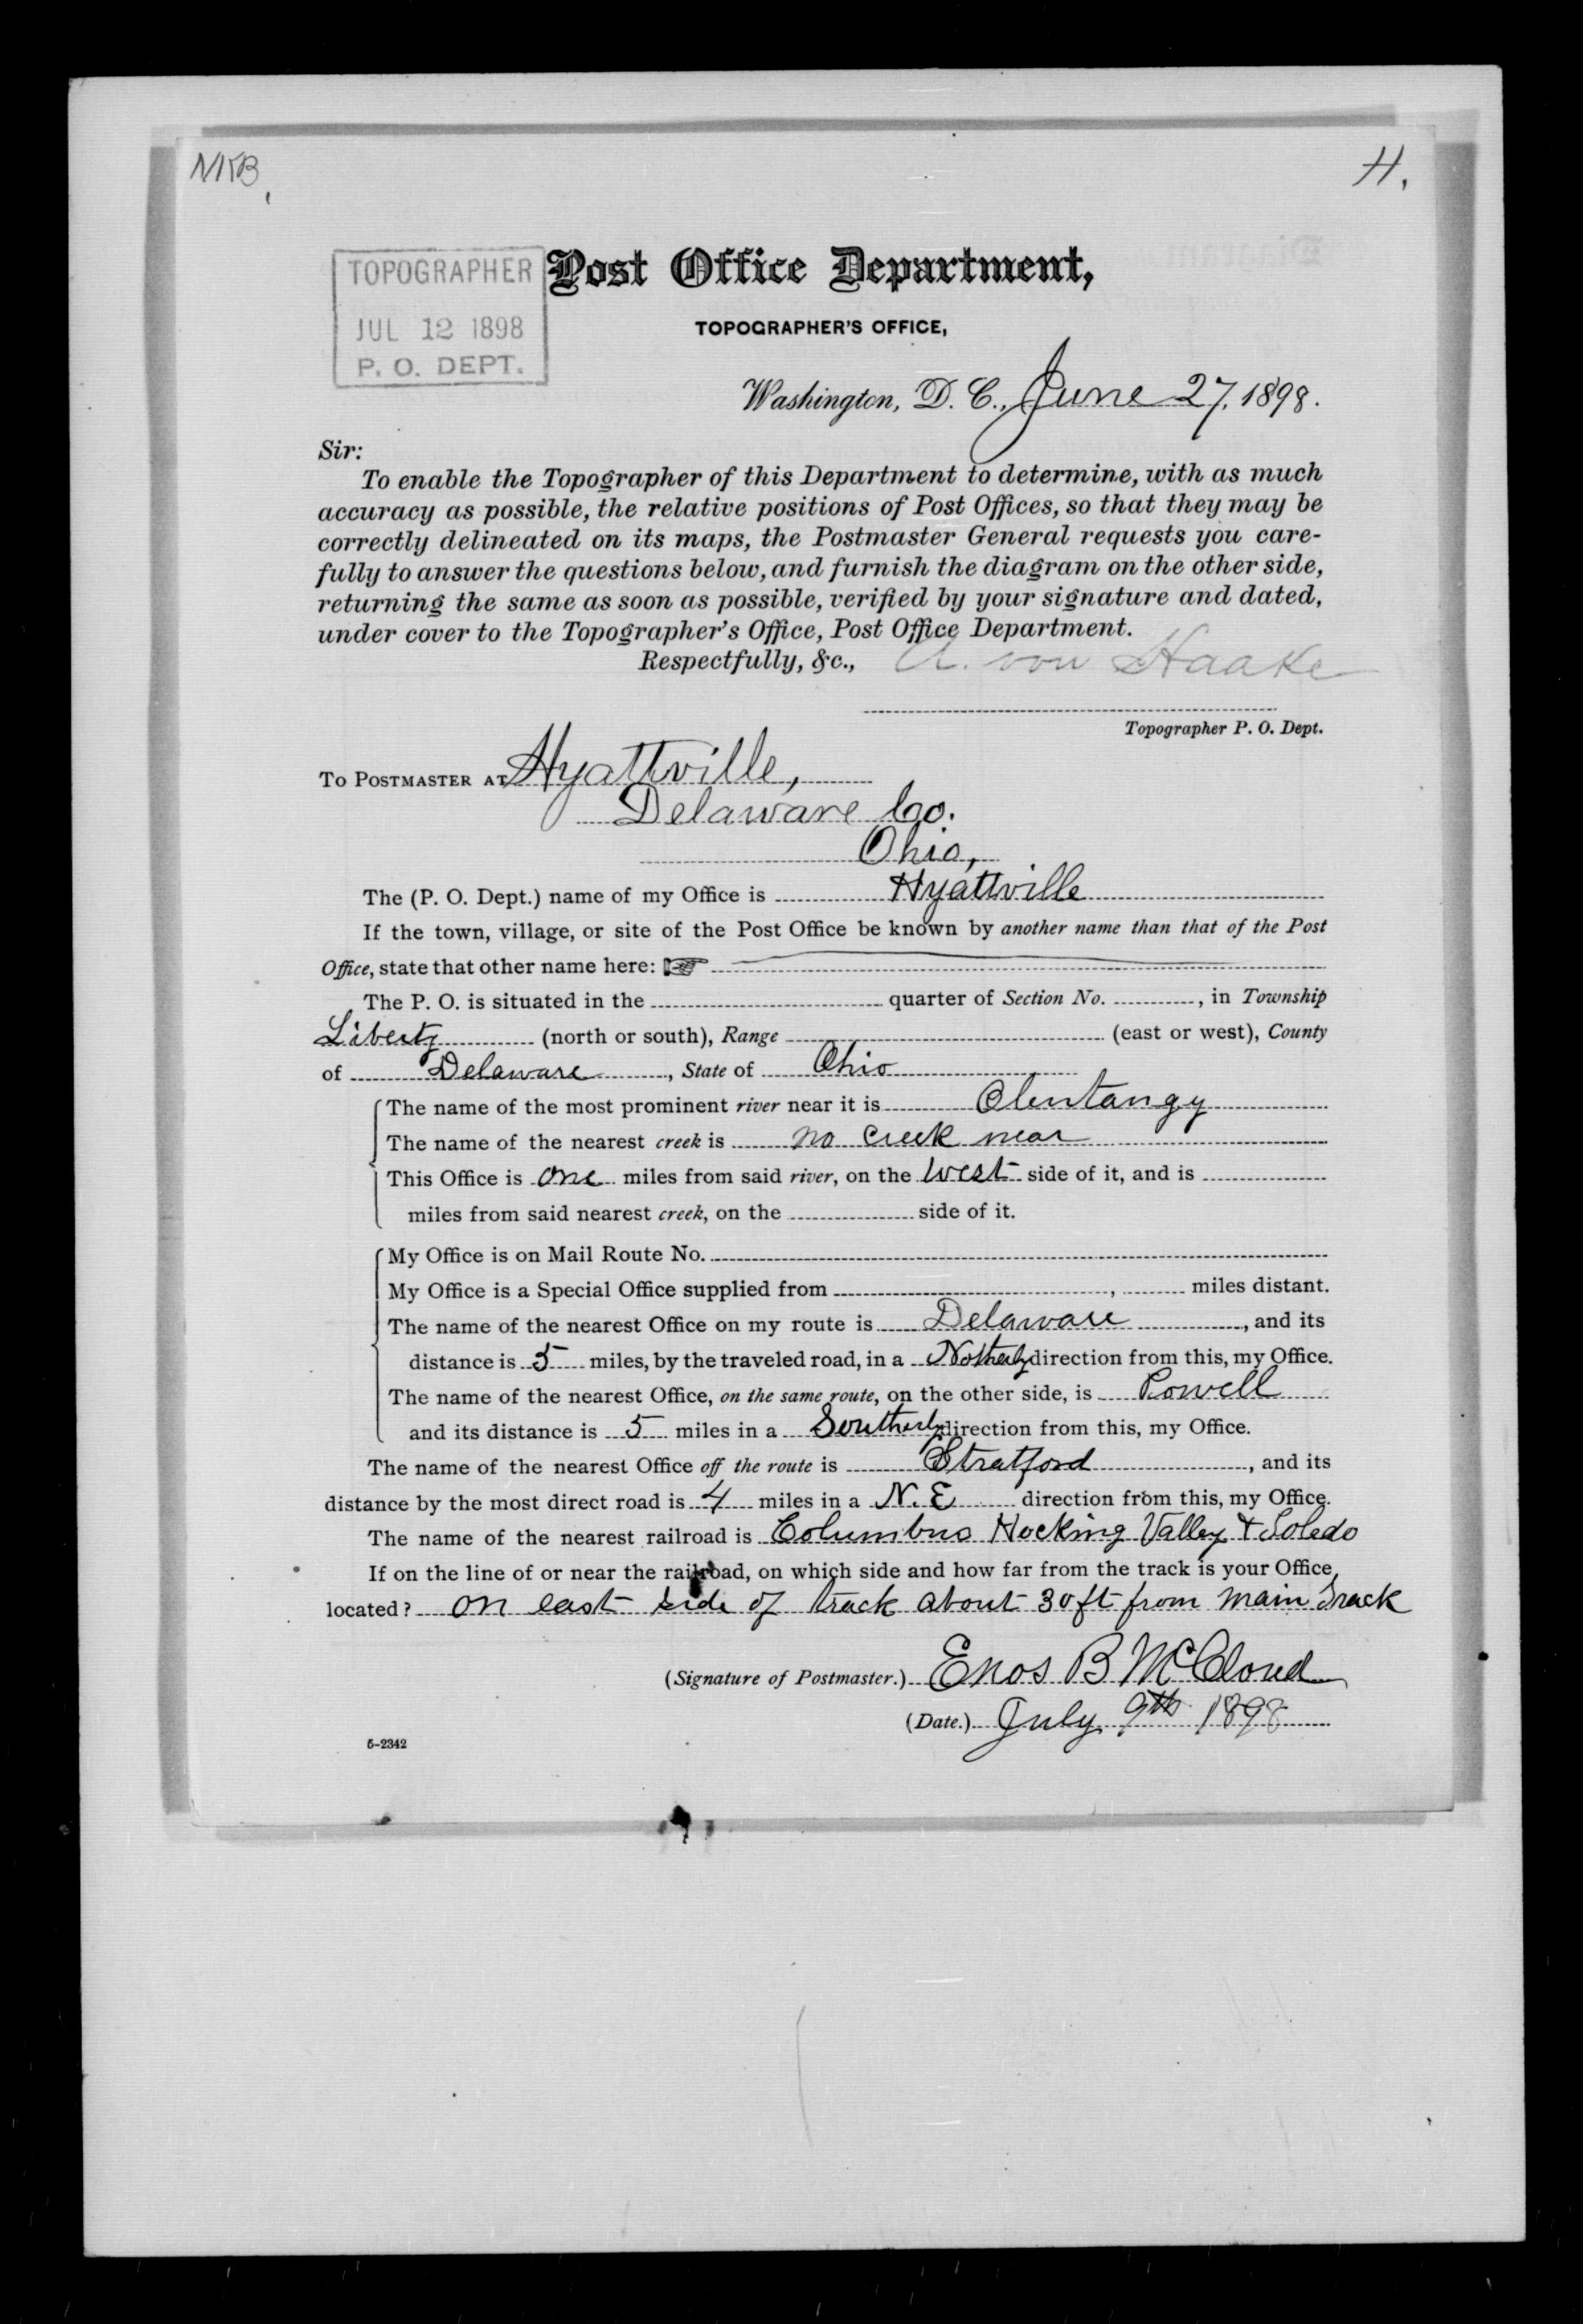 NKB
H.
TOPOGRAPHER
JUL 12 1898
P. O. DEPT.
Post Office Department,
TOPOGRAPHER'S OFFICE,
Washington, D. C., June 27, 1898.
Sir:
To enable the Topographer of this Department to determine, with as much
accuracy as possible, the relative positions of Post Offices, so that they may be
correctly delineated on its maps, the Postmaster General requests you care-
fully to answer the questions below, and furnish the diagram on the other side,
returning the same as soon as possible, verified by your signature and dated,
under cover to the Topographer's Office, Post Office Department.
Respectfully, &c., A. von Haake
Topographer P. O. Dept.
To Postmaster at Hyattville,
Delaware Co.
Ohio,
The (P. O. Dept.) name of my Office is Hyattville
If the town, village, or site of the Post Office be known by another name than that of the Post
Office, state that other name here: ☞
The P. O. is situated in the quarter of Section No. , in Township
Liberty (north or south), Range (east or west), County
of Delaware, State of Ohio
The name of the most prominent river near it is Olentangy
The name of the nearest creek is no creek near
This Office is one miles from said river, on the West side of it, and is
miles from said nearest creek, on the side of it.
My Office is on Mail Route No.
My Office is a Special Office supplied from , miles distant.
The name of the nearest Office on my route is Delaware, and its
distance is 5 miles, by the traveled road, in a Notherly direction from this, my Office.
The name of the nearest Office, on the same route, on the other side, is Powell
and its distance is 5 miles in a Southerly direction from this, my Office.
The name of the nearest Office off the route is Stratford, and its
distance by the most direct road is 4 miles in a N. E direction from this, my Office.
The name of the nearest railroad is Columbus Hocking Valley & Toledo
If on the line of or near the railroad, on which side and how far from the track is your Office
located? on east side of track about 30 ft from main Track
(Signature of Postmaster.) Enos B McCloud
(Date.) July 9th 1898
5-2342